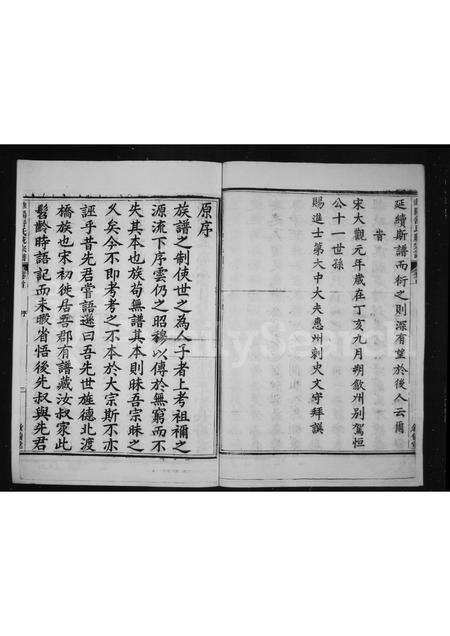 延續斯譜而衍之則深有望於後人云爾
旹
宋大觀元年歲在丁亥九月朔歙州別駕恒
公十一世孫
賜進士第大中大夫惠州刺史文守拜譔
原序
族譜之制使世之為人子者上考祖禰之
源流下序雲仍之昭穆以傳於無窮而不
失其本也族苟無譜其本則昧吾宗昧之
久矣今不即考考之不本於大宗斯不亦
誣乎昔先君嘗語選曰吾先世旌德北渡
橋族也宋初徙居吾郡有譜藏汝叔家此
髫齡時語記而未暇省悟後先叔與先君
序